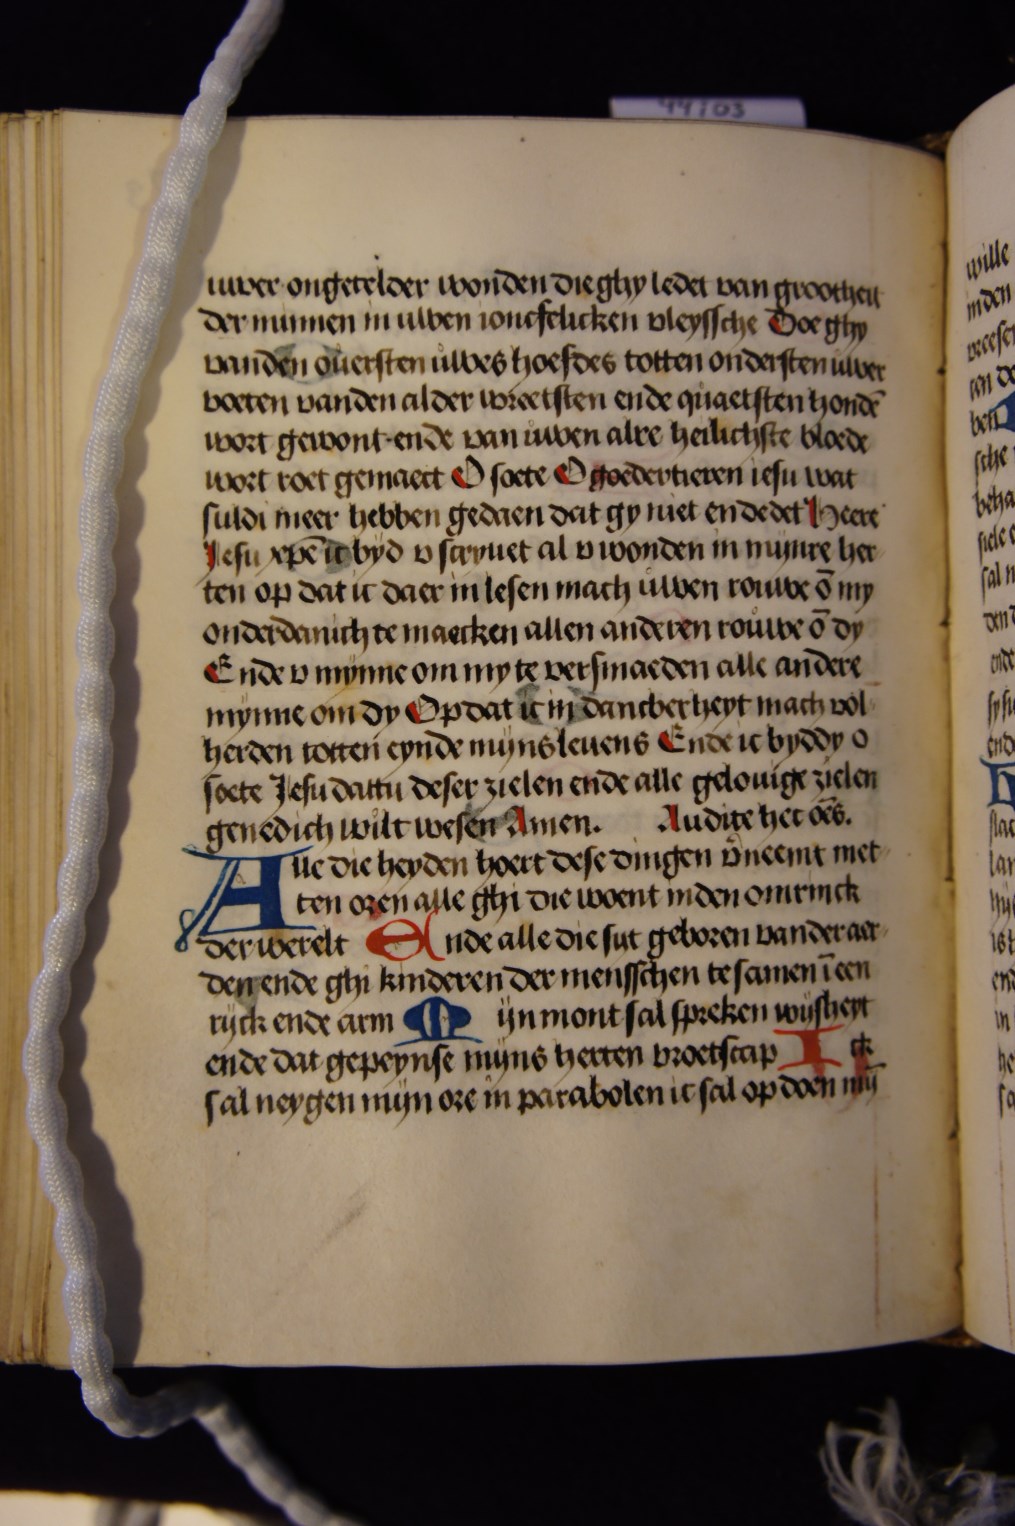 44:03
uwer ongetelder wonden die ghy ledet van grootheit
der minnen in uwen ioncfelicken vleyssche Doe ghy
vanden ouersten uwes hoefdes totten ondersten uwer
voeten vanden alder wreetsten ende quaetsten hondē
wort gewont ende van uwen alre heilichste bloede
wort roet gemaect O soete O goedertieren iesu wat
suldi meer hebben gedaen dat gy niet en dedet Heere
Jesu xpē ic byd v scryuet al v wonden in mynre her
ten op dat ic daer in lesen mach uwen rouwe ō my
onderdanich te maecken allen anderen rouwe ō dy
Ende v mynne om my te versmaeden alle andere
mynne om dy Op dat ic in dancberheyt mach vol
herden totten eynde myns leuens Ende ic byd dy o
soete Jesu dattu deser zielen ende alle gelouige zielen
genedich wilt wesen Amen. Audite hec oēs.
Alle die heyden hoert dese dingen v̄neemt met
ten oren alle ghi die woent inden omrinck
der werelt Ende alle die sijt geboren vander aer
den ende ghi kinderen der mensschen te samen ī een
rijck ende arm Mijn mont sal spreken wijsheyt
ende dat gepeynse mijns herten vroetscap Ick
sal neygen mijn ore in parabolen ic sal op doen mij
wille
inden